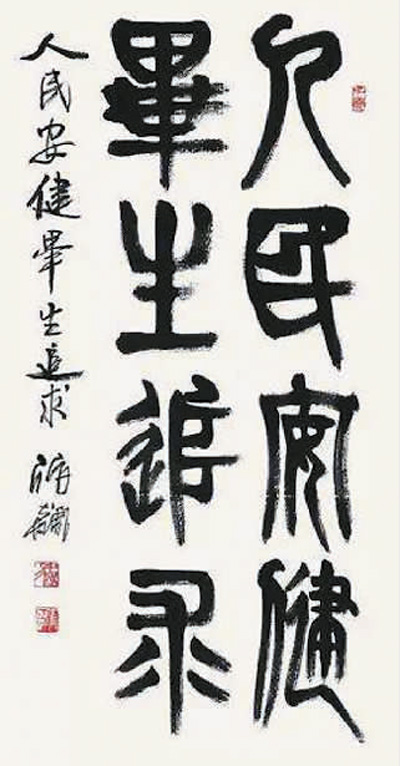 人民安健
畢生追求
人民安健畢生追求